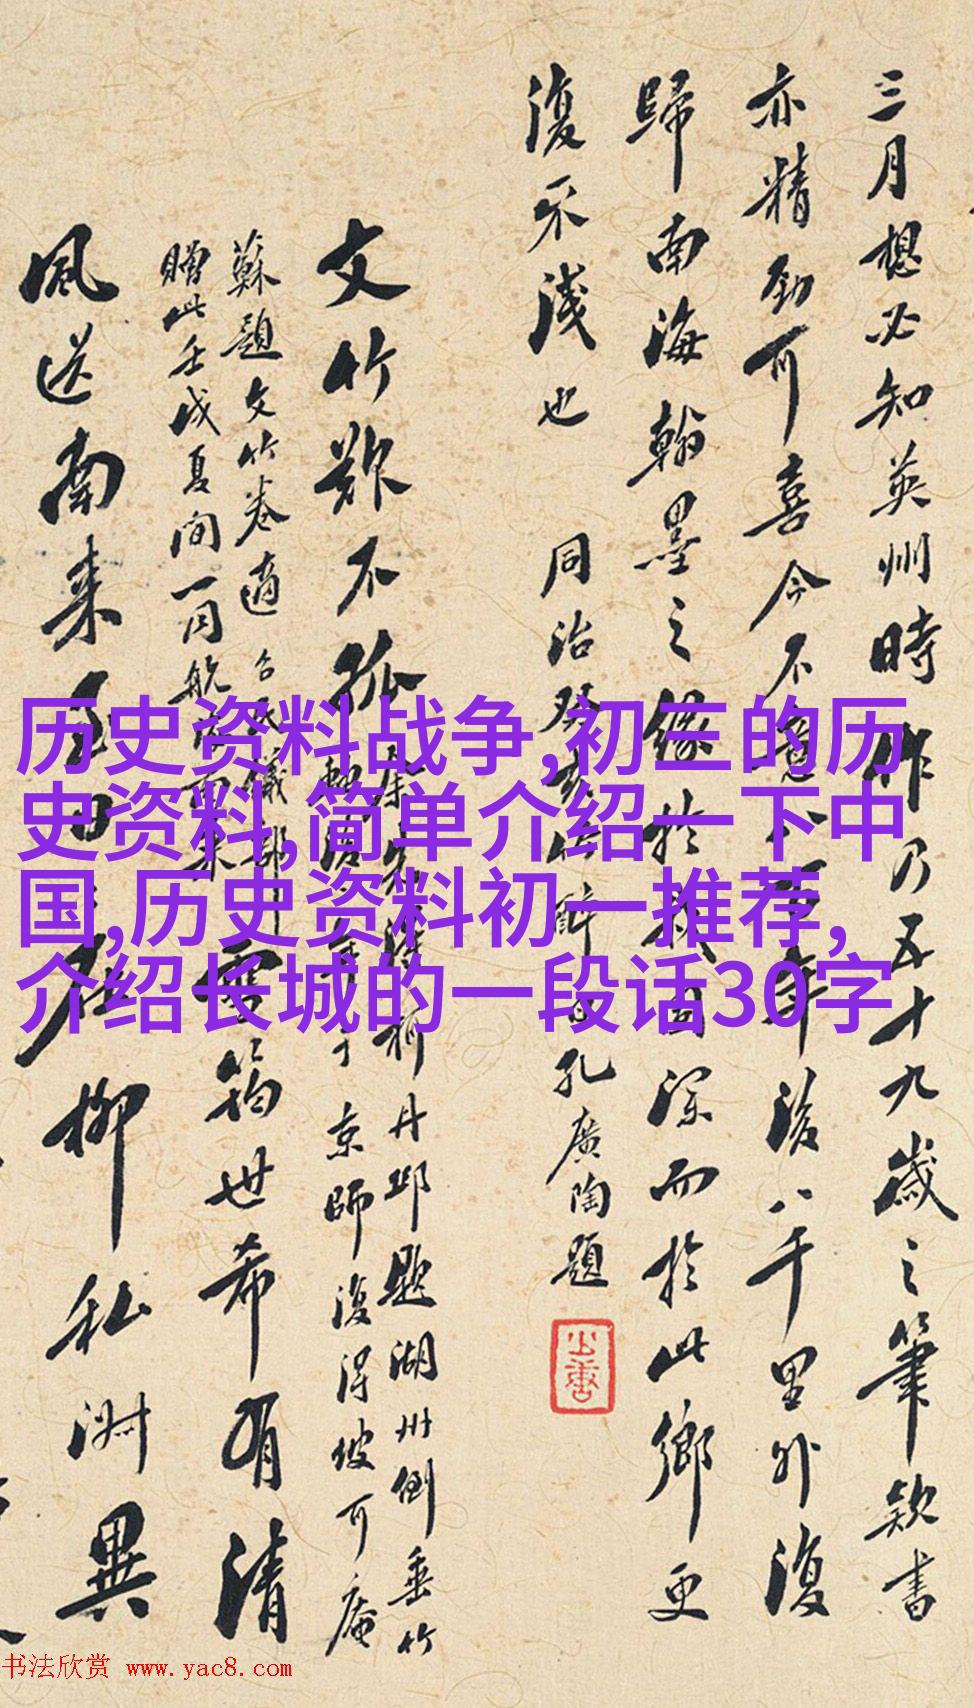 三月想必知英州時作乃五十九歲之筆款書
亦精勁可喜今不意八百年後八千里外復
歸南海翰墨之緣於我固深而於此鄉更
復不淺也 同治癸亥 孔廣陶題
文竹 不孤
柯丹邱題湖州倒垂竹
京師復得坡可庵
蘇題文竹卷適
贈此壬戌夏間一同航
雪筠世希有清
風送南來
柳私淑異
历史资料战争,初三的历
史资料,简单介绍一下中
国,历史资料初一推荐,
介绍长城的一段话30字
书法欣赏 www.yac8.com